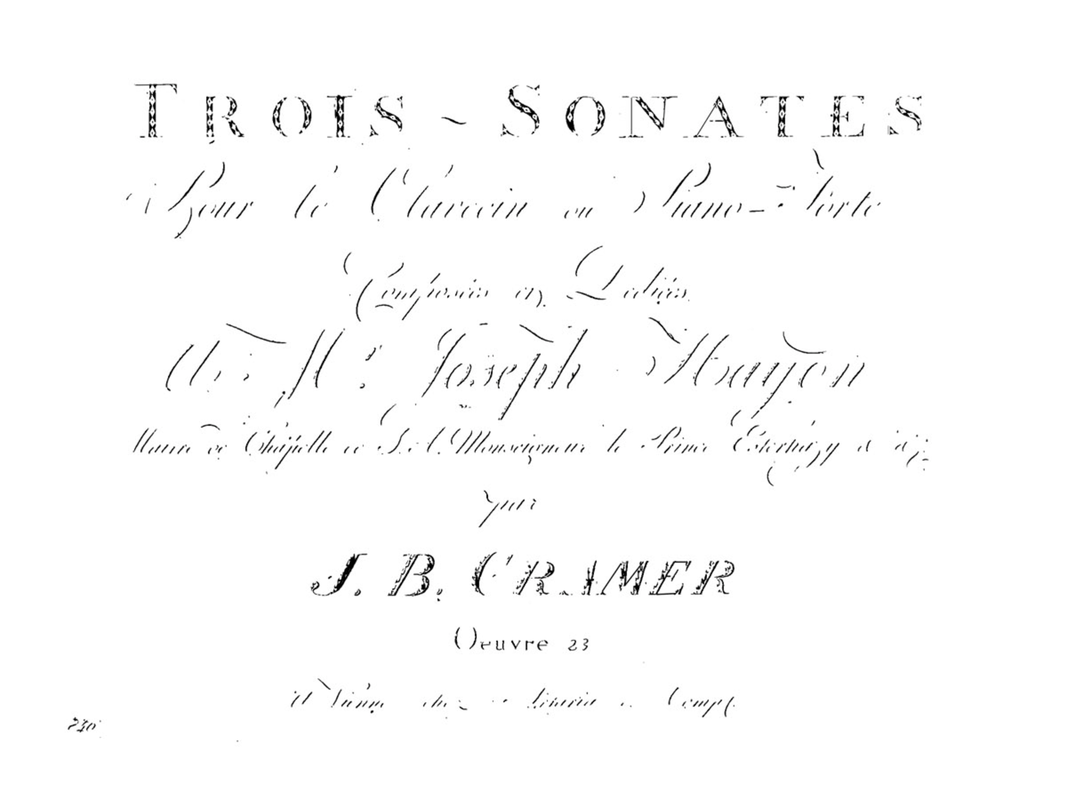 TROIS ~ SONATES
Pour le Clavecin ou Piano-Forte
Composées et Dediées
A Mr. Joseph Hayden
Maitre de Chapelle de S. A. Monseigneur le Prince Esterhazy
par
J. B. CRAMER
Oeuvre 23
A Vienne chez Comp.